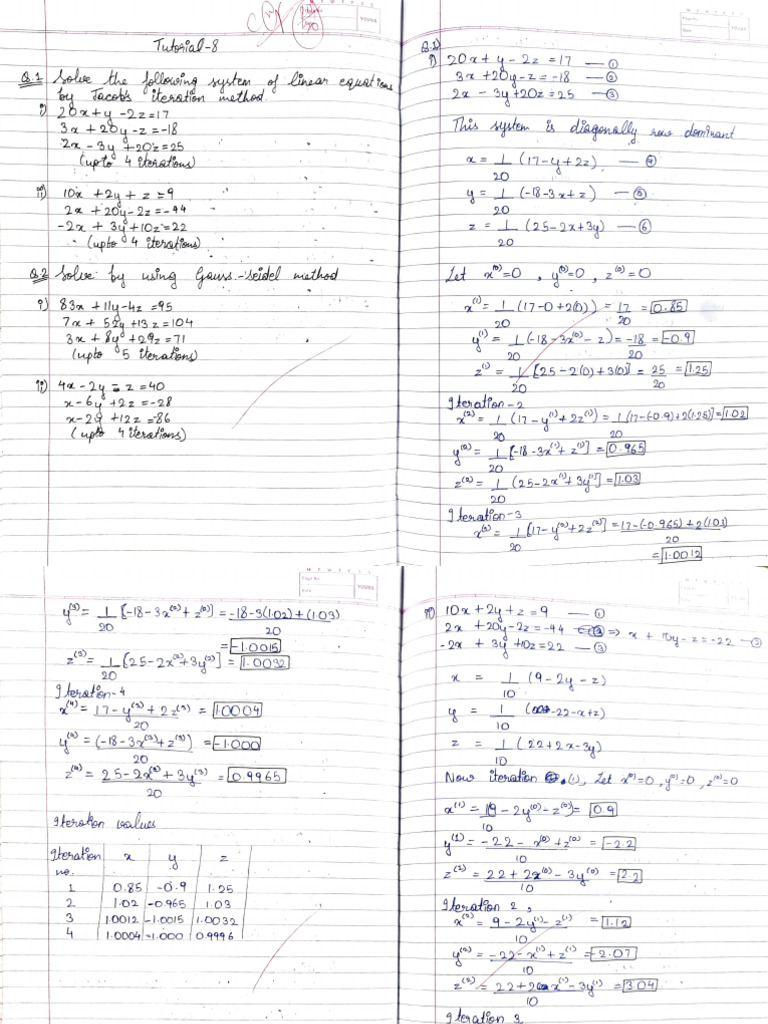 Tutorial-8
Q.1 Solve the following system of linear equations
by Jacob's iteration method.
i) 20x+y-2z=17
3x+20y-z=-18
2x-3y+20z=25
(upto 4 iterations)
ii) 10x+2y+z=9
2x+20y-2z=-44
-2x+3y+10z=22
(upto 4 iterations)
Q.2 Solve by using Gauss-seidel method
i) 83x+11y-4z=95
7x+52y+13z=104
3x+8y+29z=71
(upto 5 iterations)
ii) 4x-2y-z=40
x-6y+2z=-28
x-2y+12z=-86
(upto 4 iterations)
i) 20x+y-2z=17 —①
3x+20y-z=-18 —②
2x-3y+20z=25 —③
This system is diagonally row dominant
x = 1/20 (17-y+2z) —④
y = 1/20 (-18-3x+z) —⑤
z = 1/20 (25-2x+3y) —⑥
Let x⁽⁰⁾=0, y⁽⁰⁾=0, z⁽⁰⁾=0
x⁽¹⁾ = 1/20 (17-0+2(0)) = 17/20 = 0.85
y⁽¹⁾ = 1/20 (-18-3x⁽⁰⁾-z) = -18/20 = -0.9
z⁽¹⁾ = 1/20 [25-2(0)+3(0)] = 25/20 = 1.25
Iteration-2
x⁽²⁾ = 1/20 (17-y⁽¹⁾+2z⁽¹⁾) = 1/20 (17-(-0.9)+2(1.25)] = 1.02
y⁽²⁾ = 1/20 [-18-3x⁽¹⁾+z⁽¹⁾] = 0.965
z⁽²⁾ = 1/20 (25-2x⁽¹⁾+3y⁽¹⁾] = 1.03
Iteration-3
x⁽³⁾ = 1/20 [17-y⁽²⁾+2z⁽²⁾] = 17-(-0.965)+2(1.03)/20
= 1.0012
y⁽³⁾ = 1/20 [-18-3x⁽²⁾+z⁽²⁾] = -18-3(1.02)+(1.03)/20
= -1.0015
z⁽³⁾ = 1/20 [25-2x⁽²⁾+3y⁽²⁾] = 1.0032
Iteration-4
x⁽⁴⁾ = 17-y⁽³⁾+2z⁽³⁾/20 = 1.0004
y⁽⁴⁾ = (-18-3x⁽³⁾+z⁽³⁾)/20 = -1.000
z⁽⁴⁾ = 25-2x⁽³⁾+3y⁽³⁾/20 = 0.9965
Iteration values
Iteration no. x y z
1 0.85 -0.9 1.25
2 1.02 -0.965 1.03
3 1.0012 -1.0015 1.0032
4 1.0004 -1.000 0.9996
ii) 10x+2y+z=9 —①
2x+20y-2z=-44 —② ⇒ x+10y-z=-22 —③
-2x+3y+10z=22 —③
x = 1/10 (9-2y-z)
y = 1/10 (-22-x+z)
z = 1/10 (22+2x-3y)
Now iteration (1), Let x⁽⁰⁾=0, y⁽⁰⁾=0, z⁽⁰⁾=0
x⁽¹⁾ = 9-2y⁽⁰⁾-z⁽⁰⁾/10 = 0.9
y⁽¹⁾ = -22-x⁽⁰⁾+z⁽⁰⁾/10 = -2.2
z⁽¹⁾ = 22+2x⁽⁰⁾-3y⁽⁰⁾/10 = 2.2
Iteration 2,
x⁽²⁾ = 9-2y⁽¹⁾-z⁽¹⁾/10 = 1.12
y⁽²⁾ = -22-x⁽¹⁾+z⁽¹⁾/10 = -2.07
z⁽²⁾ = 22+2x⁽¹⁾-3y⁽¹⁾/10 = 3.04
Iteration 3